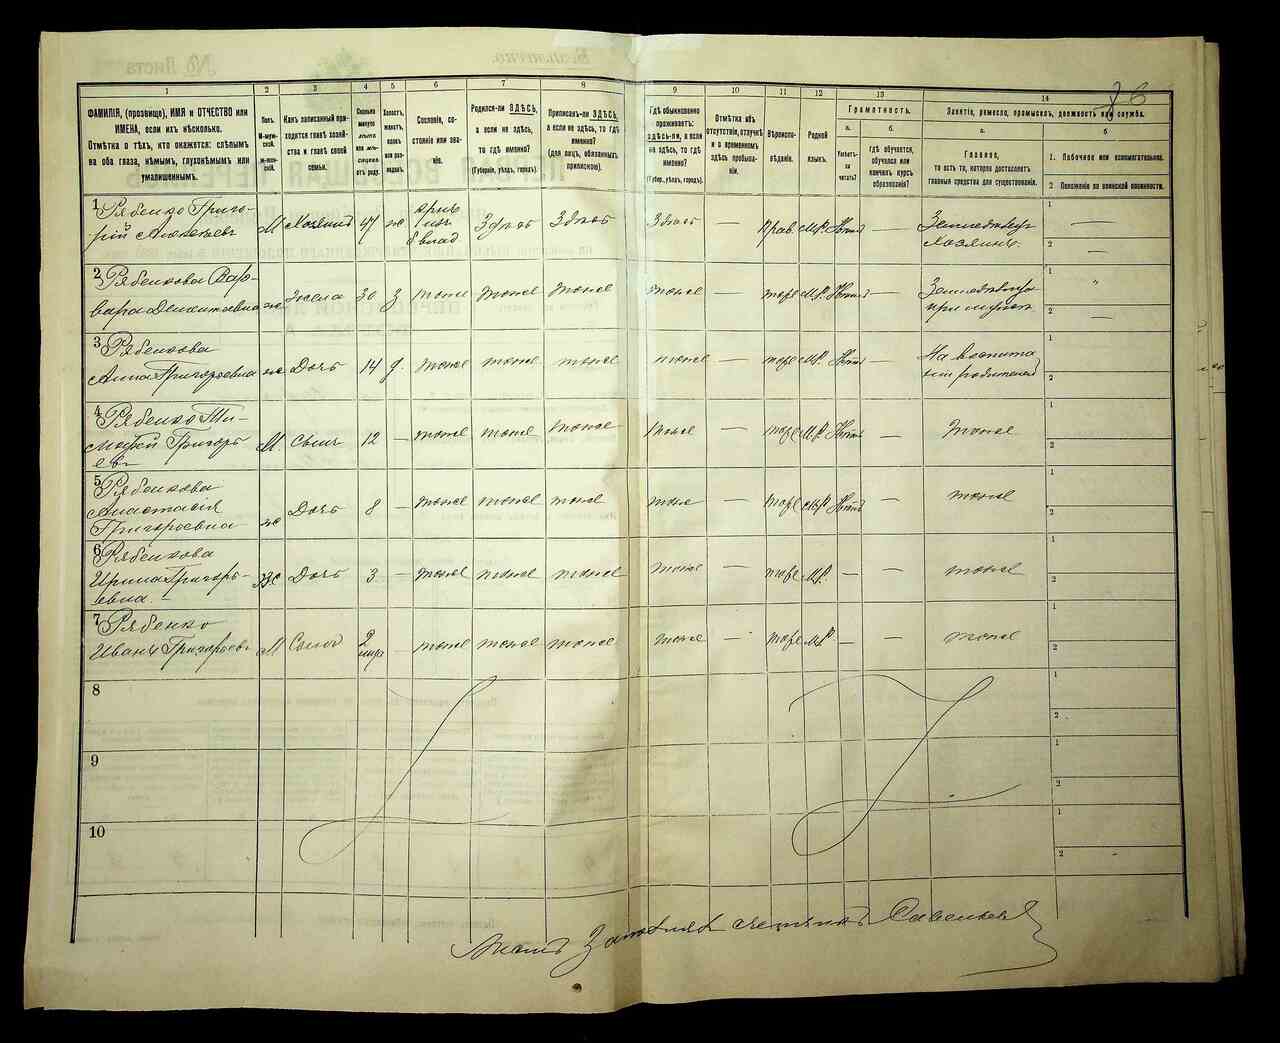 86
1 2 3 4 5 6 7 8 9 10 11 12 13 14
ФАМИЛІЯ, (прозвище), ИМЯ и ОТЧЕСТВО или
ИМЕНА, если ихъ нѣсколько.
Отмѣтка о тѣхъ, кто окажется: слѣпымъ
на оба глаза, нѣмымъ, глухонѣмымъ или
умалишеннымъ.
Полъ.
М-муж-
ской.
Ж-жен-
скій.
Какъ записанный при-
ходится главѣ хозяй-
ства и главѣ своей
семьи.
Сколько
минуло
лѣтъ
или мѣ-
сяцевъ
отъ роду.
Холостъ,
женатъ,
вдовъ
или раз-
веденъ.
Сословіе, со-
стояніе или зва-
ніе.
Родился-ли ЗДѢСЬ,
а если не здѣсь,
то гдѣ именно?
(Губернія, уѣздъ, городъ).
Приписанъ-ли ЗДѢСЬ,
а если не здѣсь, то гдѣ
именно?
(для лицъ, обязанныхъ
припискою).
Гдѣ обыкновенно
проживаетъ:
здѣсь-ли, а если
не здѣсь, то гдѣ
именно?
(Губер., уѣздъ, городъ).
Отмѣтка объ
отсутствіи, отлучкѣ
и о временномъ
здѣсь пребыва-
ніи.
Вѣроиспо-
вѣданіе.
Родной
языкъ.
Грамотность.
а.
Умѣетъ-
ли
читать?
б.
Гдѣ обучается,
обучался или
кончилъ курсъ
образованія?
Занятіе, ремесло, промыселъ, должность или служба.
а.
Главное,
то есть то, которое доставляетъ
главныя средства для существованія.
б.
1. Побочное или вспомогательное.
2 Положеніе по воинской повинности.
1 Рябенко Григо-
рій Алексѣевъ М Хозяинъ 47 ж Здѣсь Здѣсь Здѣсь — Прав. М.Р. Нѣтъ — Земледѣлецъ Хозяинъ 1 — 2 —
2 Рябенкова Вар-
вара ж Жена 30 з тоже тоже тоже тоже — тоже М.Р. Нѣтъ — 1 " 2 —
3 Рябенкова
Анна Григорьевна ж Дочь 14 д. тоже тоже тоже тоже — тоже М.Р. Нѣтъ — На воспита
ніи родителей 1 2
4 Рябенко Ти-
мофей Григорь
евъ М. Сынъ 12 — тоже тоже тоже тоже — тоже М.Р. Нѣтъ — тоже 1 2
5 Рябенкова
Анастасія
Григорьевна ж Дочь 8 — тоже тоже тоже тоже — тоже М.Р. Нѣтъ — тоже 1 2
6 Рябенкова
Ирина Григорь-
евна. ж Дочь 3 — тоже тоже тоже тоже — тоже М.Р. — — тоже 1 2
7 Рябенко
Иванъ Григорьевъ М Сынъ 2 — тоже тоже тоже тоже — тоже М.Р. — — тоже 1 2
8 1 2
9 1 2
10 1 2
счетчикъ Савельевъ